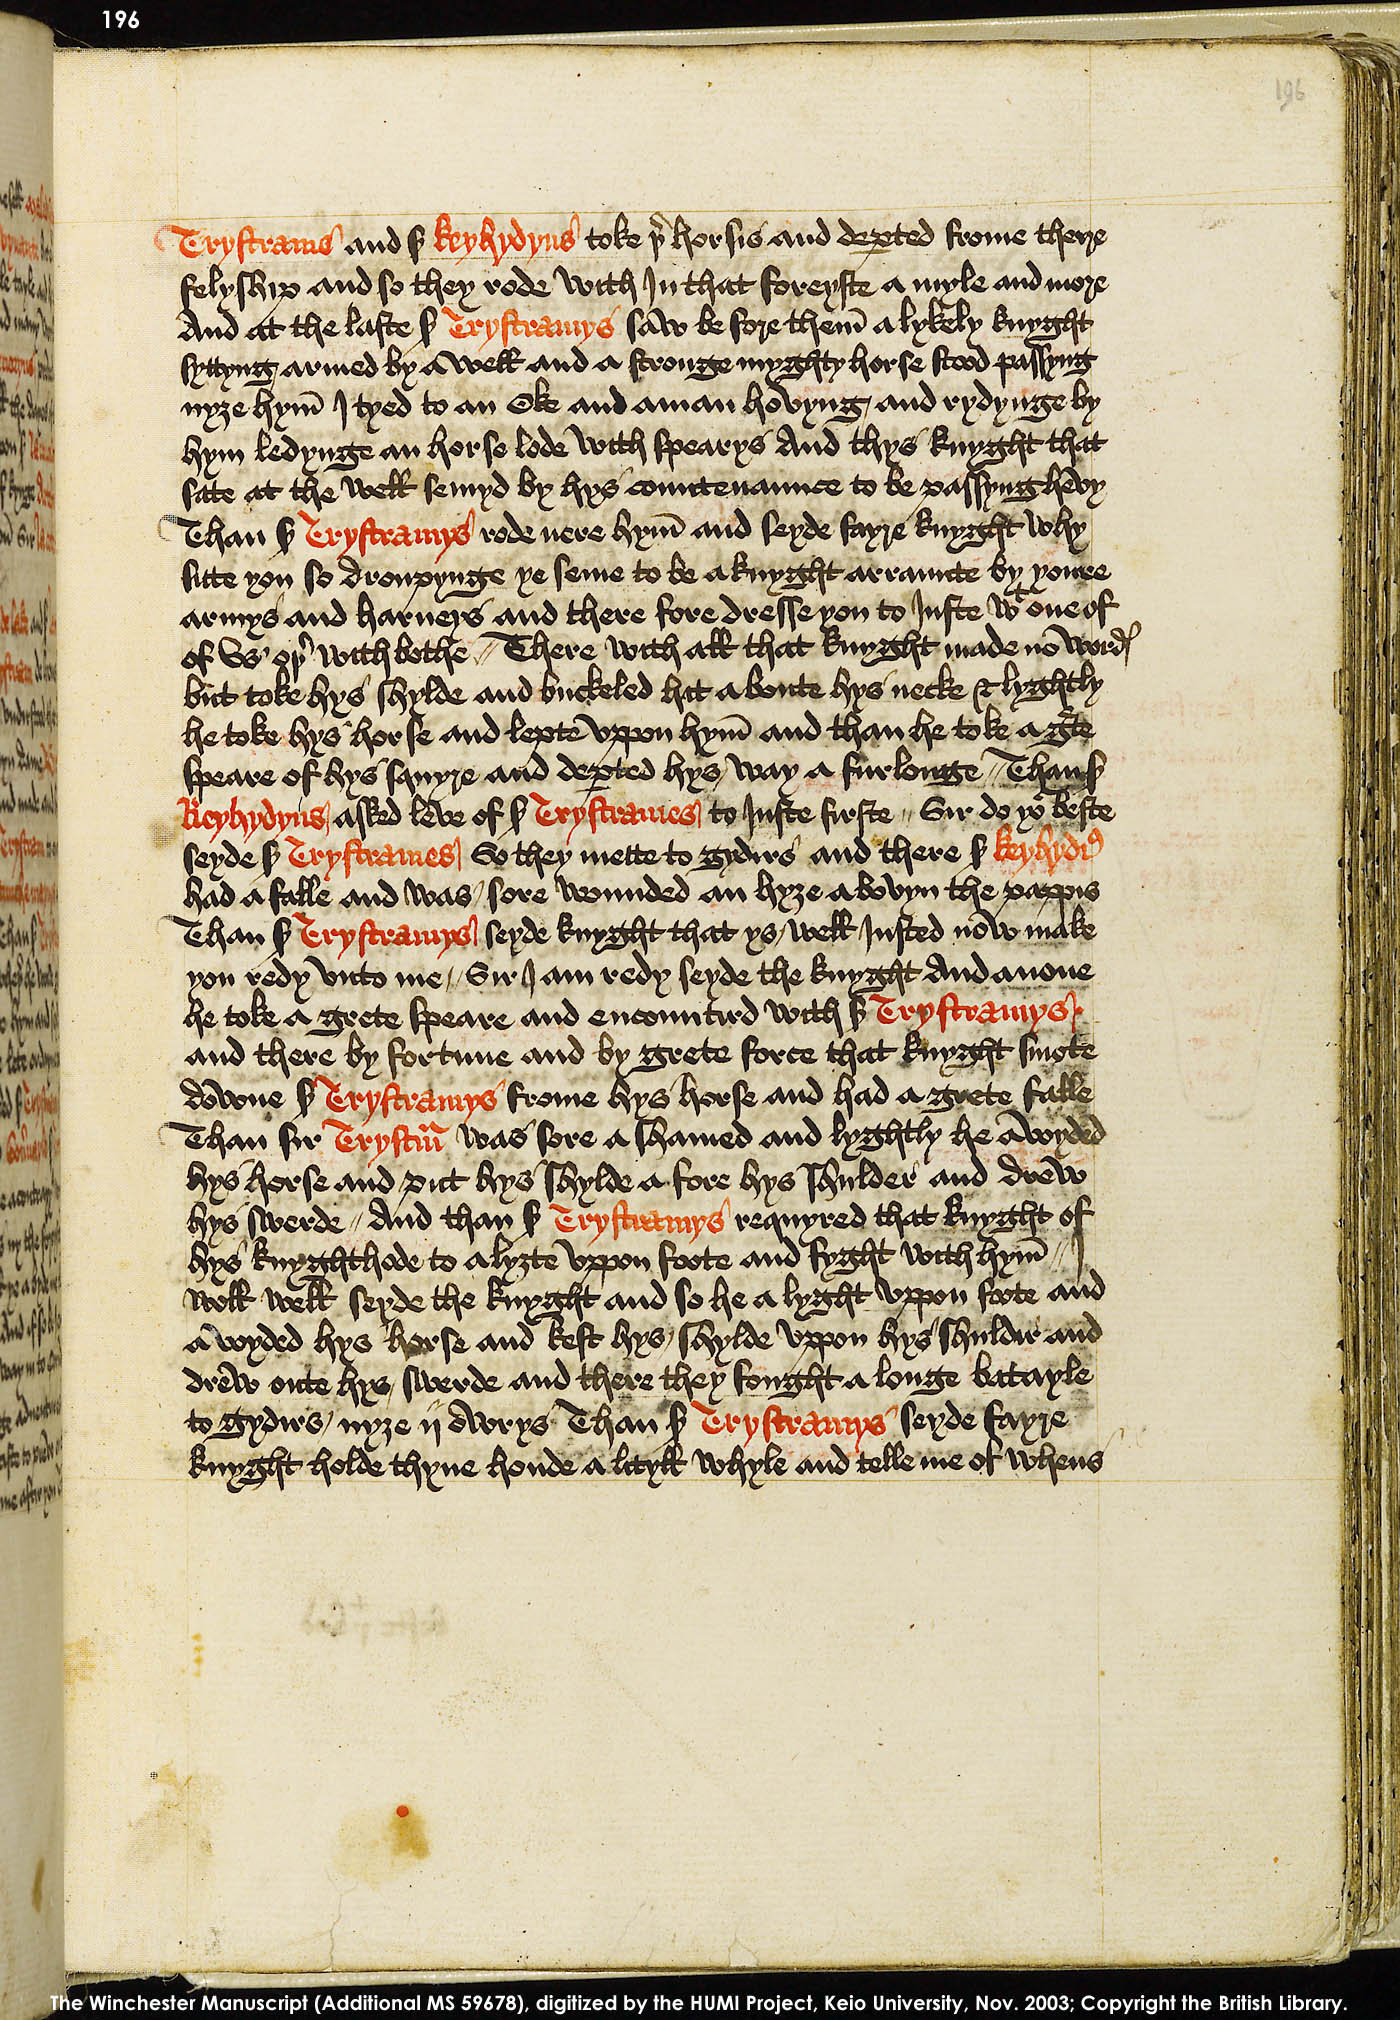 196
196
Trystrams and sʳ keyhydyus toke þʳ horsis and depted frome there
felyship and so they rode with In that foreyste a myle and more
And at the laste sʳ Trystramys saw be fore them̄ a lykely knyght
syttyng armed by a well and a stronge myghty horse stood passyng
nyȝe hym̄ I tyed to an Oke and a man hovyng and rydynge by
hym ledynge an horse lode with spearys And thys knyght that
sate at the well semyd by hys countenaunce to be passyng hevy
Than sʳ Trystramys rode nere hym̄ and seyde fayre knyght why
sitte you so droupynge ye seme to be a knyght arraunte by youre
armys and harneys and there fore dresse you to Juste wᵗ one of
of vs oþʳ with bothe // There with all that knyght made no word
but toke hys shylde and buckeled hit a boute hys necke & lyghtly
he toke hys horse and lepte vppon hym̄ and than he toke a gʳte
speare of hys squyre and depted hys way a furlonge // Than sʳ
Keyhydyus asked leve of sʳ Trystrames to Juste firste // Sir do yoʳ beste
seyde sʳ Trystrames So they mette to gydirs and there sʳ keyhydiꝰ
had a falle and was sore wounded an hyȝe a bovyn the pappis
Than sʳ Trystramys seyde knyght that ys well Justed now make
you redy vnto me // Sir I am redy seyde the knyght And anone
he toke a grete speare and encountird with sʳ Trystramys
and there by fortune and by grete force that knyght smote
downe sʳ Trystramys frome hys horse and had a grete falle
Than sir Trystrā was sore a shamed and lyghtly he a woyded
hys horse and put hys shylde a fore hys shulder and drew
hys swerde // And than sʳ Trystramys requyred that knyght of
hys knyghthode to a lyȝte vppon foote and fyght with hym̄ // I
woll well seyde the knyght and so he a lyght vppon foote and
a woyded hys horse and kest hys shylde vppon hys shuldir and
drew oute hys swerde and there they fought a longe batayle
to gydirs nyȝe ij owrys Than sʳ Trystramys seyde fayre
knyght holde thyne honde a lityll whyle and telle me of whens
The Winchester Manuscript (Additional MS 59678), digitized by the HUMI Project, Keio University, Nov. 2003; Copyright the British Library.